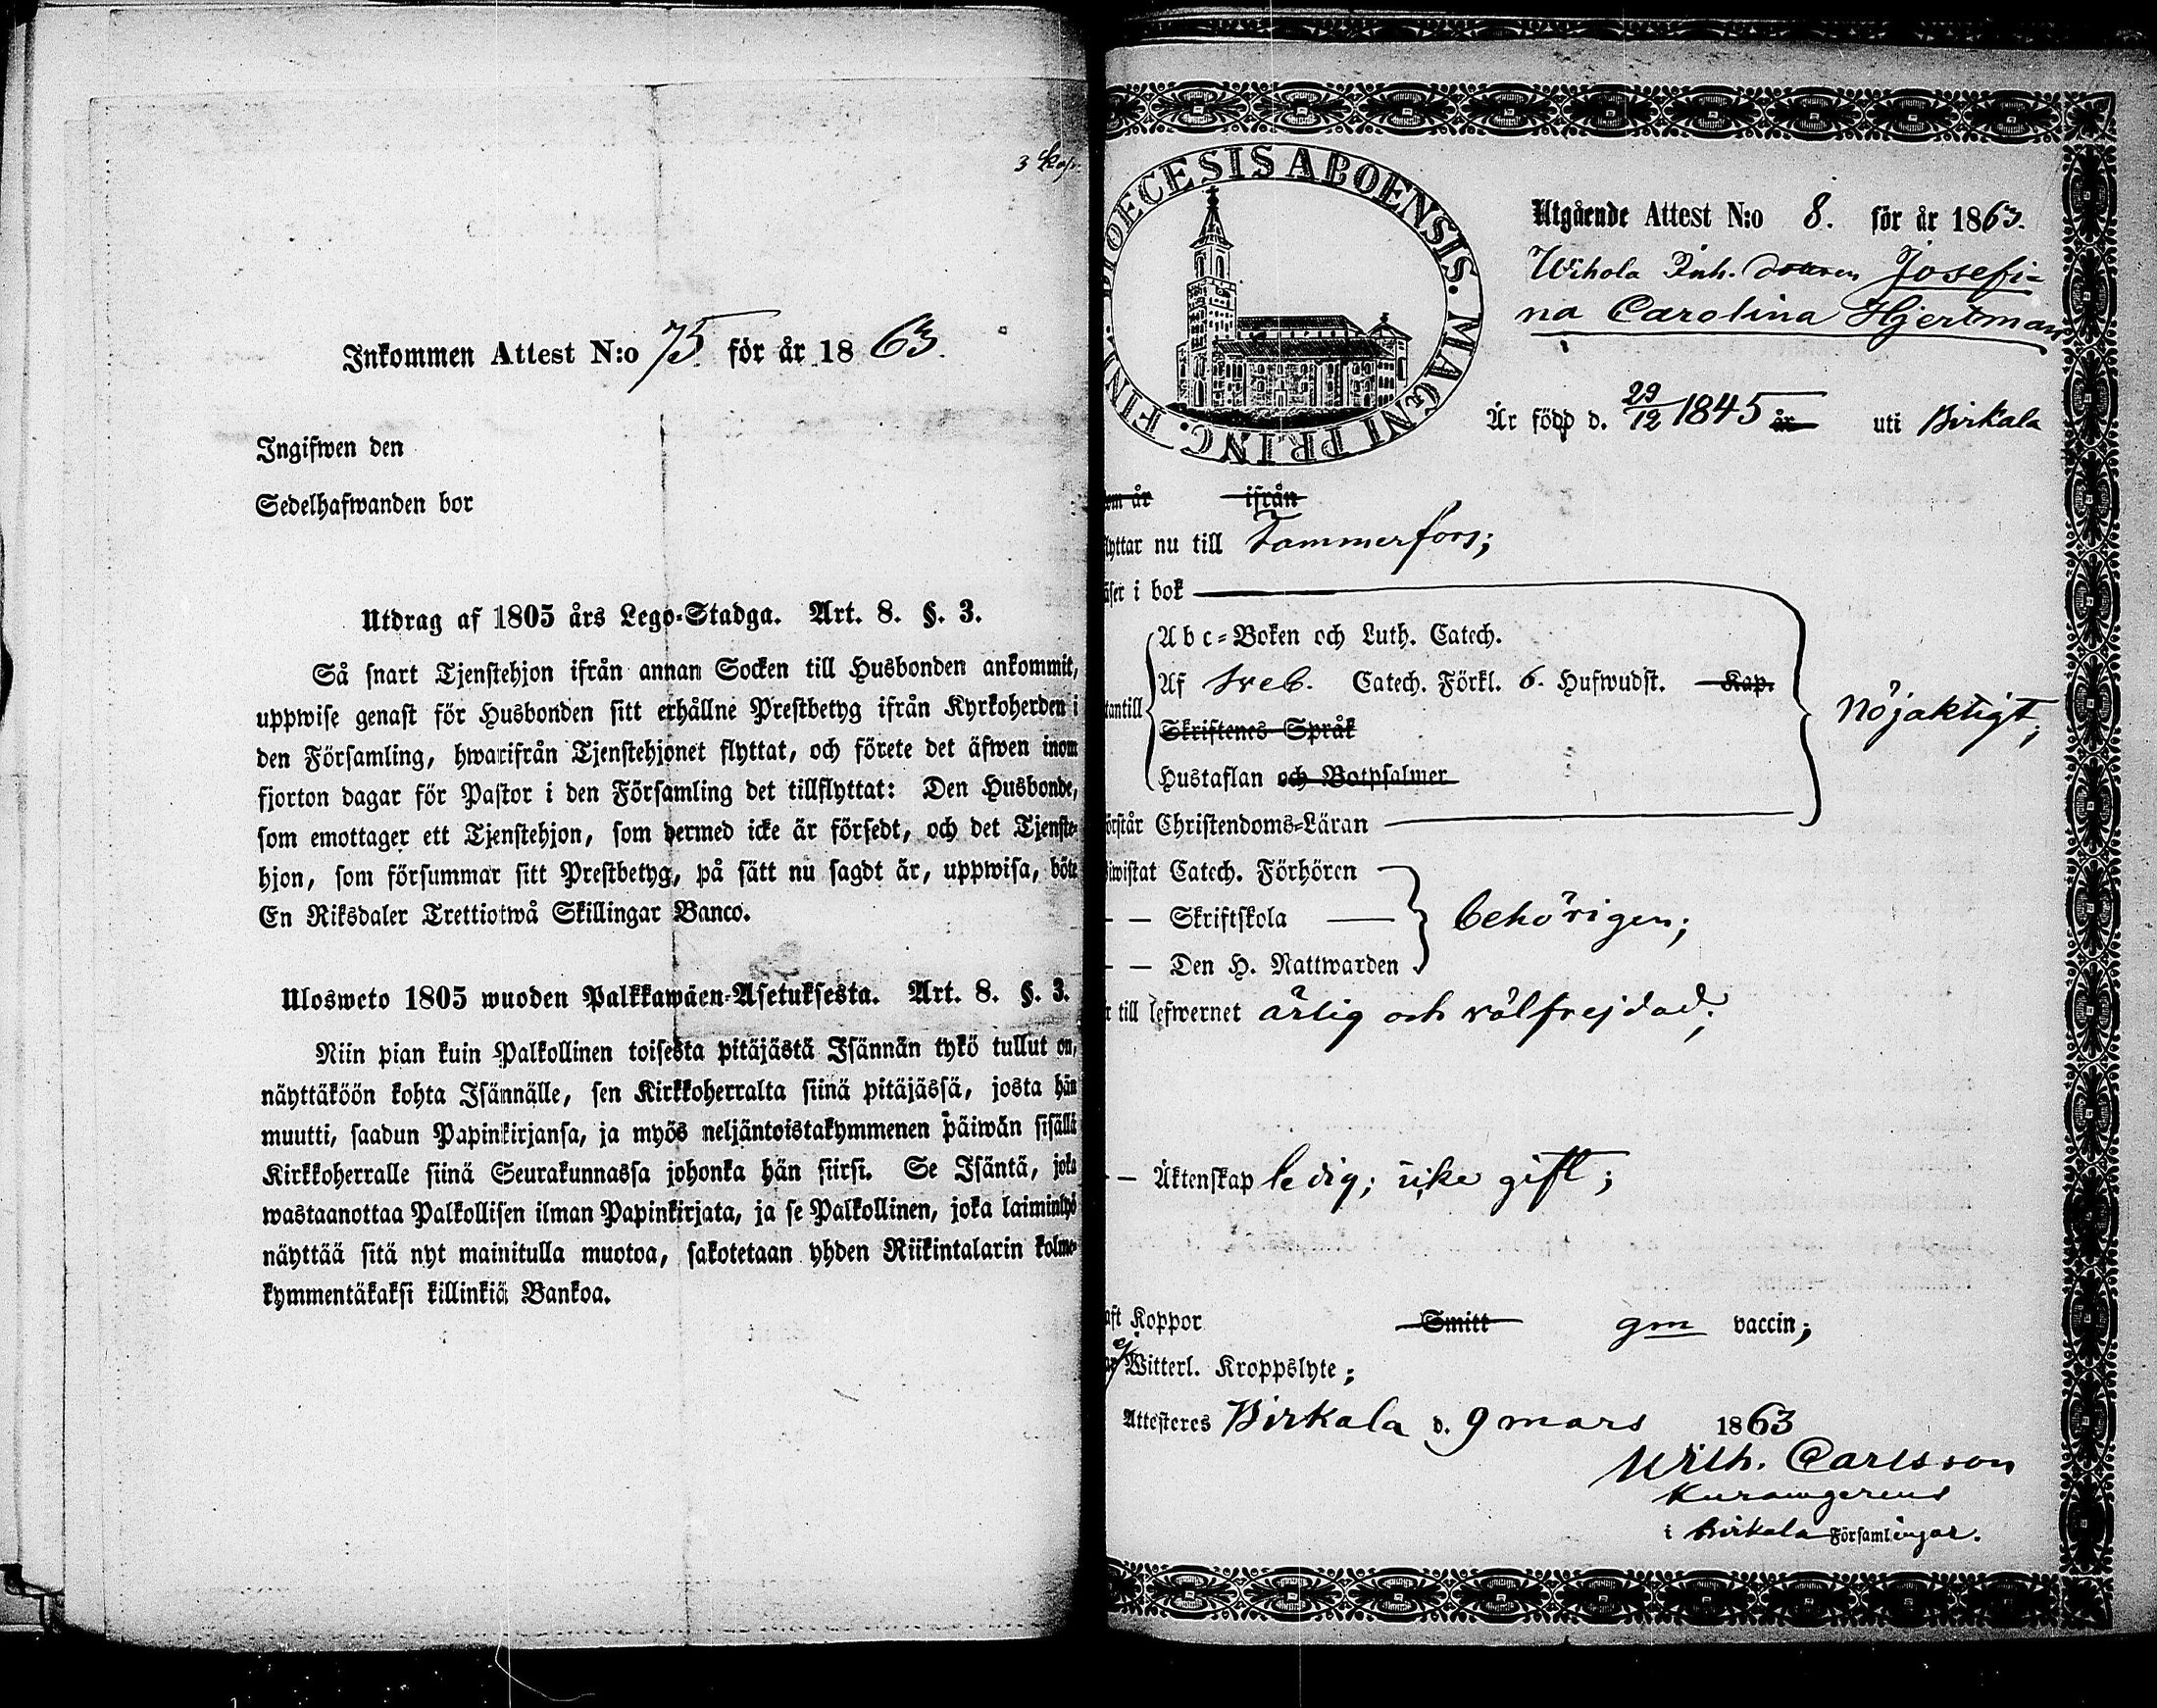 3 kop.
Inkommen Attest N:o 75 för år 1863.
Ingifwen den
Sedelhafwanden bor
Utdrag af 1805 års Lego-Stadga. Art. 8. §. 3.
Så snart Tjenstehjon ifrån annan Socken till Husbonden ankommit,
uppwise genast för Husbonden sitt erhållne Prestbetyg ifrån Kyrkoherden i
den Församling, hwarifrån Tjenstehjonet flyttat, och förete det äfwen inom
fjorton dagar för Pastor i den Församling det tillflyttat: Den Husbonde,
som emottager ett Tjenstehjon, som dermed icke är försedt, och det Tjenste-
hjon, som försummar sitt Prestbetyg, på sätt nu sagdt är, uppwisa, böte
En Riksdaler Trettiotwå Skillingar Banco.
Ulosweto 1805 wuoden Palkkawäen-Asetuksesta. Art. 8. §. 3.
Niin pian kuin Palkollinen toisesta pitäjästä Isännän tykö tullut on,
näyttäköön kohta Isännälle, sen Kirkkoherralta siinä pitäjässä, josta hän
muutti, saadun Papinkirjansa, ja myös neljäntoistakymmenen päiwän sisällä
Kirkkoherralle siinä Seurakunnassa johonka hän siirsi. Se Isäntä, joka
wastaanottaa Palkollisen ilman Papinkirjata, ja se Palkollinen, joka laiminlyö
näyttää sitä nyt mainitulla muotoa, sakotetaan yhden Riikintalarin kolme-
kymmentäkaksi killinkiä Bankoa.
DIOECESIS ABOENSIS. MAGNI PRINC. FINL.
Utgående Attest N:o 8. för år 1863.
Wihola Inh. dottren Josefi-
na Carolina Hjertman
Är född d. 29/12 1845 år uti Birkala
om år ifrån
lyttar nu till Tammerfors;
äser i bok
Abc-Boken och Luth. Catech.
Af Sveb. Catech. Förkl. 6. Hufwudst. Kap.
tantill
Skriftenes Språk
Hustaflan och Botpsalmer
nöjaktigt;
örstår Christendoms-Läran
iwistat Catech. Förhören
— — Skriftskola
behörigen;
— — Den H. Nattwarden
r till lefwernet ärlig och välfrejdad;
— — Äktenskap ledig; icke gift;
aft Koppor Smitt gm vaccin;
ej Witterl. Kroppslyte;
Attesteres Birkala d. 9 mars 1863
Wilh. Carlsson
Kuramgerens
i Birkala Församlingar.